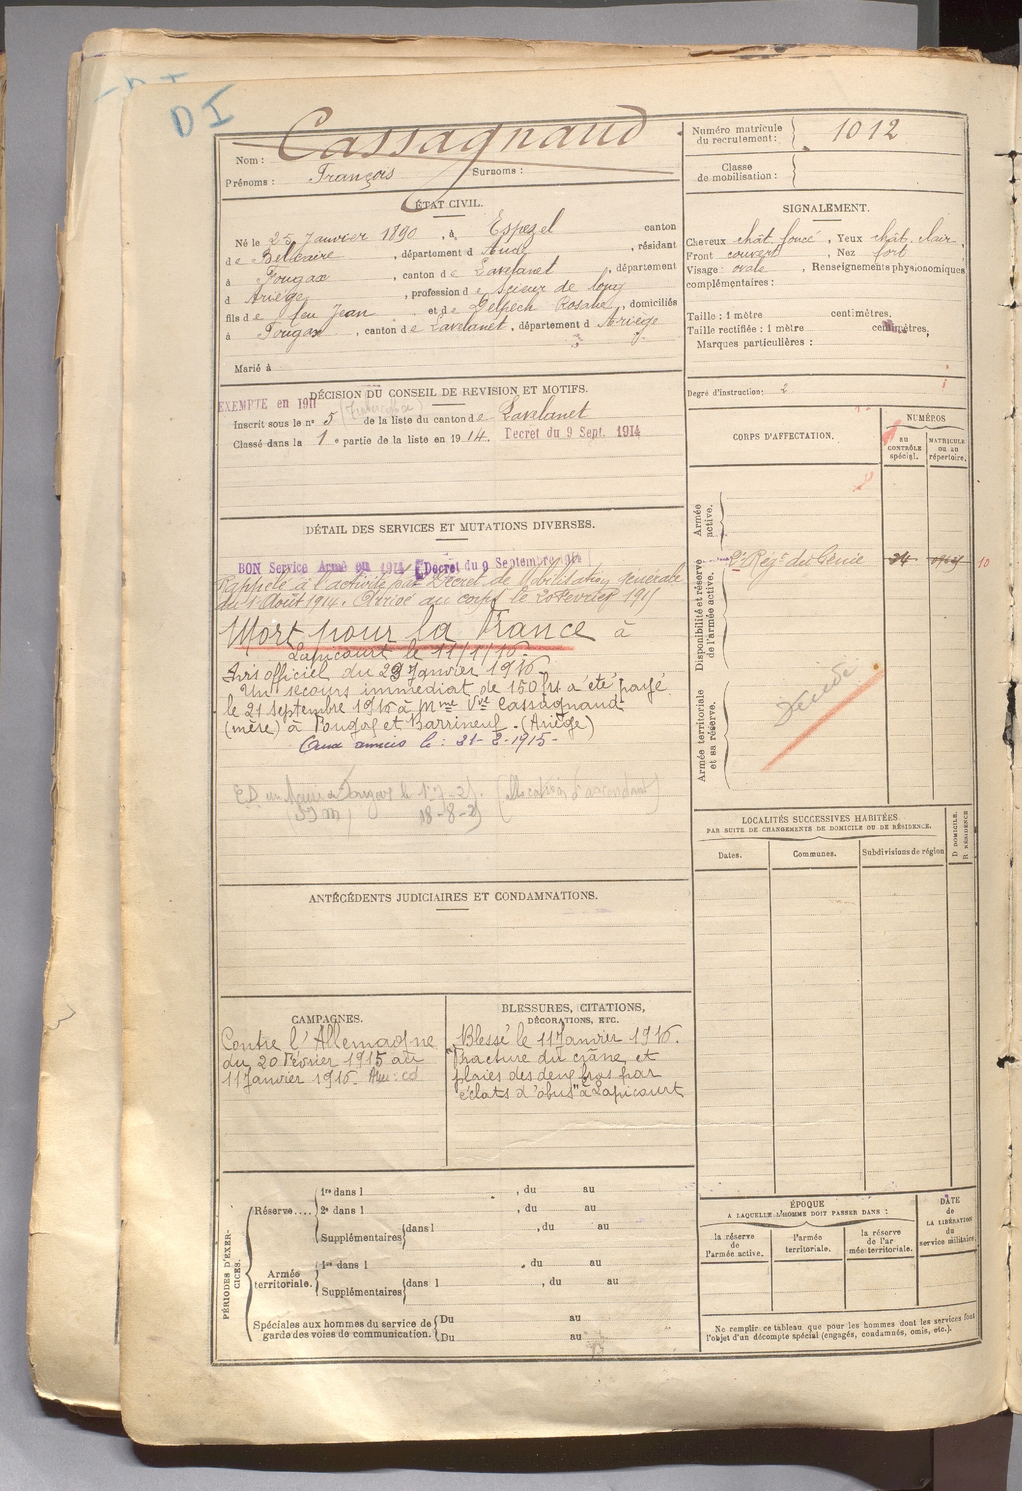 D I
Nom : Cassagnaud
Prénoms : François Surnoms :
Numéro matricule du recrutement : 1012
Classe de mobilisation :
ÉTAT CIVIL.
Né le 25 Janvier 1890, à Espezel canton
de Belcaire, département d Aude, résidant
à Fougax, canton de Lavelanet, département
d Ariège, profession de scieur de long
fils de feu Jean et de Delpech Rosalie, domiciliés
à Fougax, canton de Lavelanet, département d Ariège
Marié à
SIGNALEMENT.
Cheveux chât. foncé, Yeux chât. clair,
Front couvert, Nez fort
Visage : ovale, Renseignements physionomiques
complémentaires :
Taille : 1 mètre centimètres.
Taille rectifiée : 1 mètre centimètres,
Marques particulières :
Degré d'instruction : 2
DÉCISION DU CONSEIL DE REVISION ET MOTIFS.
EXEMPTE en 1911
Inscrit sous le n° 5 de la liste du canton de Lavelanet
Classé dans la 1e partie de la liste en 1914. Decret du 9 Sept. 1914
CORPS D'AFFECTATION.
NUMÉROS
AU CONTRÔLE spécial.
MATRICULE ou au répertoire.
Armée active.
Disponibilité et réserve de l'armée active.
2e Régt du Génie 34 10
Armée territoriale et sa réserve.
Décédé
DÉTAIL DES SERVICES ET MUTATIONS DIVERSES.
BON Service Armé en 1914 (Decret du 9 Septembre 1914)
Rappelé à l'activité par Décret de Mobilisation générale
du 1 Août 1914. Arrivé au corps le 20 Février 1915
Mort pour la France à
Lapicourt le 11/1/16.
Avis officiel du 29 Janvier 1916
Un secours immédiat de 150 frs a été payé
le 21 septembre 1916 à Mme Vve Cassagnaud
(mère) à Fougax et Barrineuf - (Ariège)
Aux armées le : 21-2-1915-
18-8-21 (Allocation d'ascendant)
LOCALITÉS SUCCESSIVES HABITÉES
PAR SUITE DE CHANGEMENTS DE DOMICILE OU DE RÉSIDENCE.
D DOMICILE.
R RÉSIDENCE
Dates. Communes. Subdivisions de région
ANTÉCÉDENTS JUDICIAIRES ET CONDAMNATIONS.
CAMPAGNES.
Contre l'Allemagne
du 20 Février 1915 au
11 Janvier 1916.
BLESSURES, CITATIONS,
DÉCORATIONS, ETC.
Blessé le 11 Janvier 1916.
"Fracture du crâne et
plaies des deux bras par
éclats d'obus" à Lapicourt
ÉPOQUE
A LAQUELLE L'HOMME DOIT PASSER DANS :
la réserve de l'armée active.
l'armée territoriale.
la réserve de l'ar mée territoriale.
DATE de LA LIBÉRATION du service militaire.
PÉRIODES D'EXERCICES.
Réserve....
1re dans l , du au
2e dans l , du au
Supplémentaires dans l , du au
Armée territoriale.
1re dans l , du au
Supplémentaires dans l , du au
Spéciales aux hommes du service de garde des voies de communication.
Du au
Du au
Ne remplir ce tableau que pour les hommes dont les services font
l'objet d'un décompte spécial (engagés, condamnés, omis, etc.).